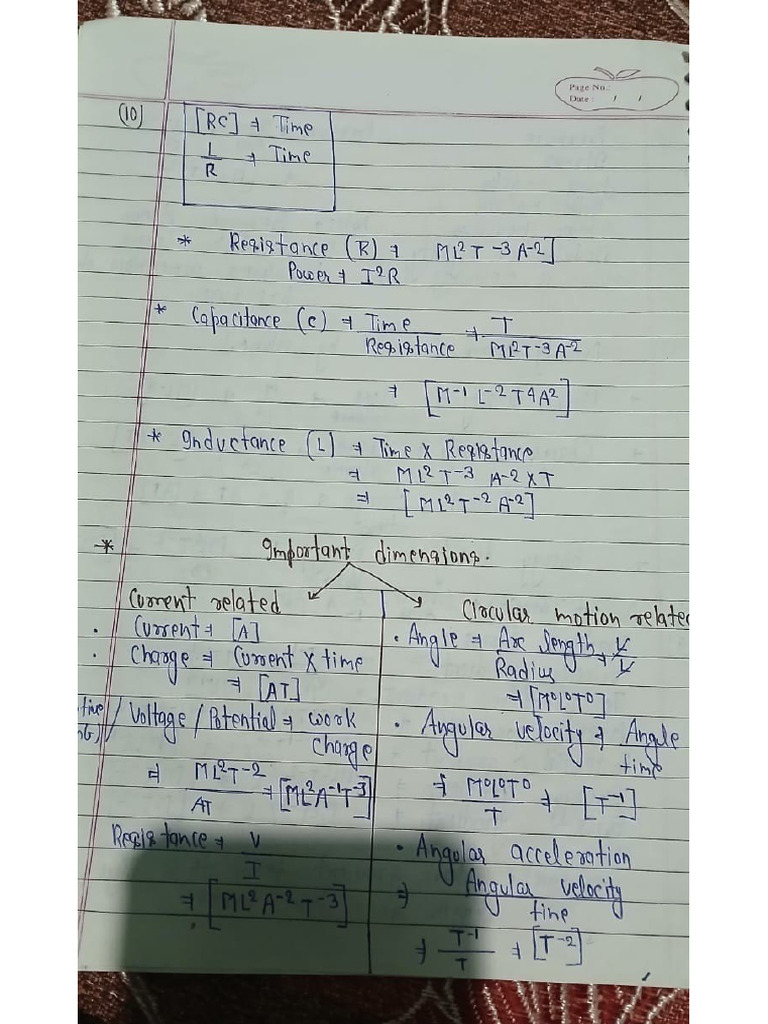 Page No.:
Date : / /
(10) [RC] → Time
L/R → Time
* Resistance (R) → ML²T⁻³A⁻²]
Power → I²R
* Capacitance (C) → Time/Resistance → T/ML²T⁻³A⁻²
→ [M⁻¹L⁻²T⁴A²]
* Inductance (L) → Time × Resistance
→ ML²T⁻³ A⁻² × T
⇒ [ML²T⁻²A⁻²]
* Important dimensions.
Current related
• Current → [A]
• Charge → Current × time
→ [AT]
/Voltage/Potential → work/charge
⇒ ML²T⁻²/AT → [ML²A⁻¹T⁻³]
Resistance → V/I
→ [ML²A⁻²T⁻³]
Circular motion relate
• Angle → Arc length/Radius → L/L
→ [M⁰L⁰T⁰]
• Angular velocity → Angle/time
→ M⁰L⁰T⁰/T → [T⁻¹]
• Angular acceleration
⇒ Angular velocity/time
→ T⁻¹/T → [T⁻²]